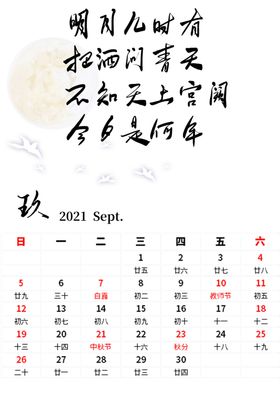 明月几时有
把酒问青天
不知天上宫阙
今夕是何年
玖 2021 Sept.
日 一 二 三 四 五 六
1 2 3 4
廿五 廿六 廿七 廿八
5 6 7 8 9 10 11
廿九 三十 白露 初二 初三 教师节 初五
12 13 14 15 16 17 18
初六 初七 初八 初九 初十 十一 十二
19 20 21 22 23 24 25
十三 十四 中秋节 十六 秋分 十八 十九
26 27 28 29 30
二十 廿一 廿二 廿三 廿四